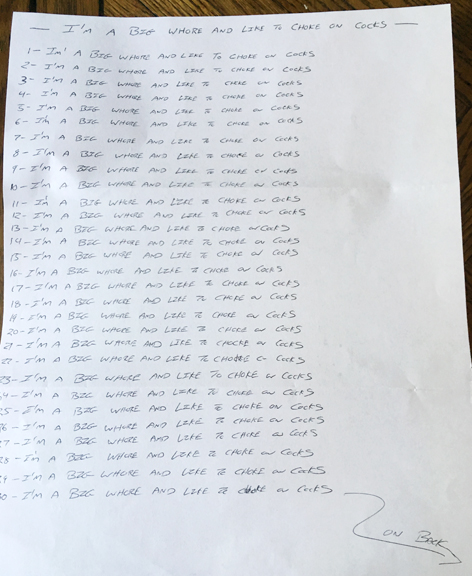 — I'M A BIG WHORE AND LIKE TO CHOKE ON COCKS —
1- Im' A BIG WHORE AND LIKE TO CHOKE ON COCKS
2- I'M A BIG WHORE AND LIKE TO CHOKE ON COCKS
3- I'M A BIG WHORE AND LIKE TO CHOKE ON COCKS
4- I'M A BIG WHORE AND LIKE TO CHOKE ON COCKS
5- I'M A BIG WHORE AND LIKE TO CHOKE ON COCKS
6- I'm A BIG WHORE AND LIKE TO CHOKE ON COCKS
7- I'M A BIG WHORE AND LIKE TO CHOKE ON COCKS
8- I'M A BIG WHORE AND LIKE TO CHOKE ON COCKS
9- I'M A BIG WHORE AND LIKE TO CHOKE ON COCKS
10- I'M A BIG WHORE AND LIKE TO CHOKE ON COCKS
11- I'm A BIG WHORE AND LIKE TO CHOKE ON COCKS
12- I'M A BIG WHORE AND LIKE TO CHOKE ON COCKS
13- I'M A BIG WHORE AND LIKE TO CHOKE ON COCKS
14- I'M A BIG WHORE AND LIKE TO CHOKE ON COCKS
15- I'M A BIG WHORE AND LIKE TO CHOKE ON COCKS
16- I'M A BIG WHORE AND LIKE TO CHOKE ON COCKS
17- I'M A BIG WHORE AND LIKE TO CHOKE ON COCKS
18- I'M A BIG WHORE AND LIKE TO CHOKE ON COCKS
19- I'M A BIG WHORE AND LIKE TO CHOKE ON COCKS
20- I'M A BIG WHORE AND LIKE TO CHOKE ON COCKS
21- I'M A BIG WHORE AND LIKE TO CHOCKE ON COCKS
22- I'M A BIG WHORE AND LIKE TO CHOKE ON COCKS
23- I'M A BIG WHORE AND LIKE TO CHOKE ON COCKS
4- I'M A BIG WHORE AND LIKE TO CHOKE ON COCKS
25- I'm A BIG WHORE AND LIKE TO CHOKE ON COCKS
6- I'm A BIG WHORE AND LIKE TO CHOKE ON COCKS
7- I'M A BIG WHORE AND LIKE TO CHOKE ON COCKS
8- I'm A BIG WHORE AND LIKE TO CHOKE ON COCKS
9- I'M A BIG WHORE AND LIKE TO CHOKE ON COCKS
0- I'M A BIG WHORE AND LIKE TO CHOKE ON COCKS
ON BACK